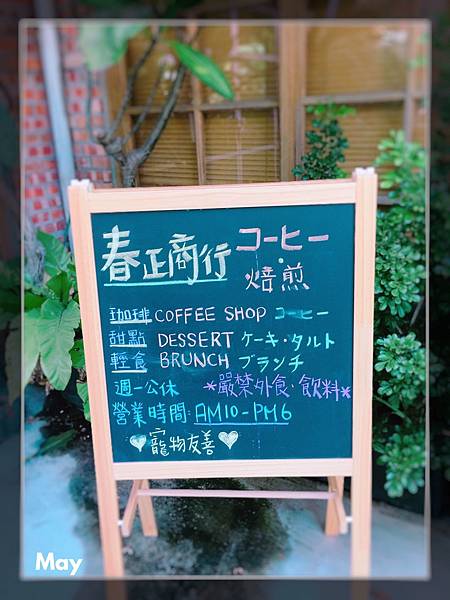 春正商行 コーヒー
焙煎
珈琲 COFFEE SHOP コーヒー
甜點 DESSERT ケーキ・タルト
輕食 BRUNCH ブランチ
週一公休 *嚴禁外食、飲料*
營業時間:AM10-PM6
♡寵物友善♡
May